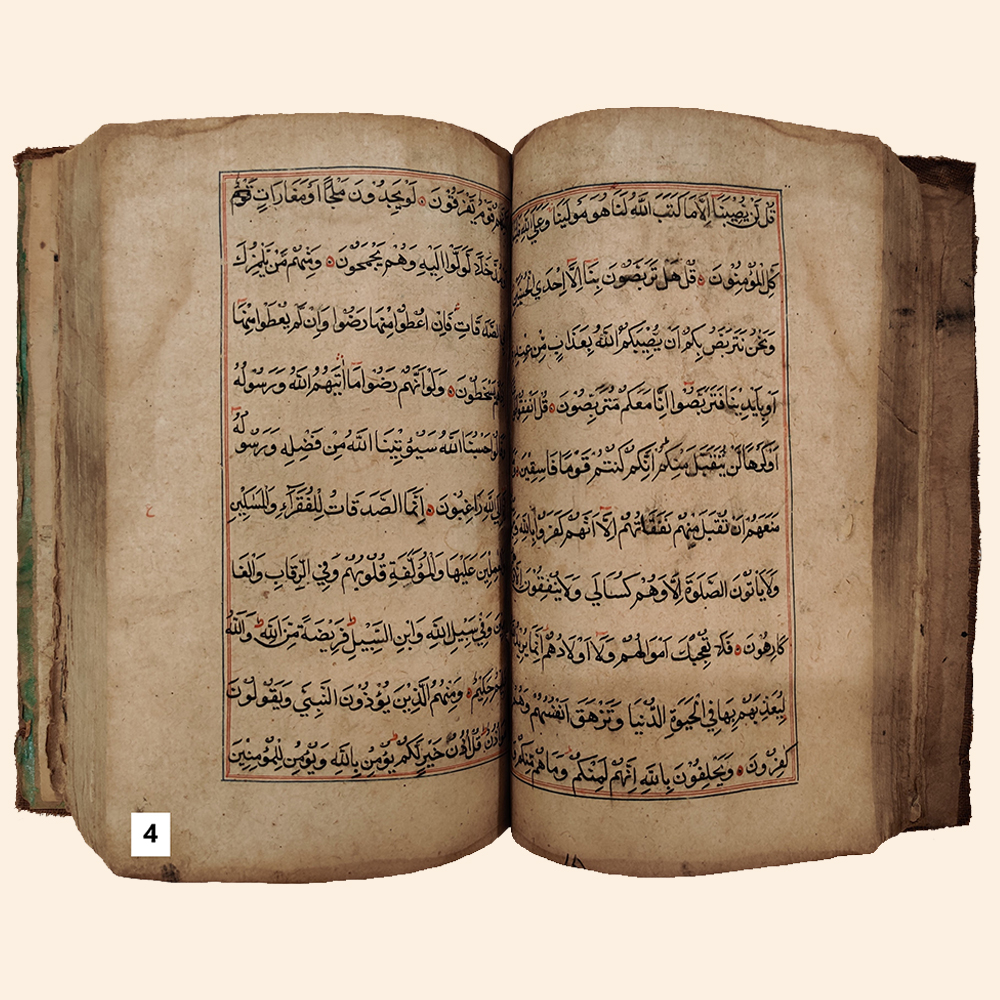 قُلْ لَنْ يُصِيْبَنَا اِلَّا مَا كَتَبَ اللّٰهُ لَنَا هُوَ مَوْلٰينَا وَعَلَى اللّٰهِ
كَّلِ الْمُؤْمِنُوْنَ قُلْ هَلْ تَرَبَّصُوْنَ بِنَا اِلَّا اِحْدَى
وَنَحْنُ نَتَرَبَّصُ بِكُمْ اَنْ يُصِيْبَكُمُ اللّٰهُ بِعَذَابٍ مِّنْ
اَوْ بِاَيْدِيْنَا فَتَرَبَّصُوْا اِنَّا مَعَكُمْ مُتَرَبِّصُوْنَ قُلْ
اَوْ كَرْهًا لَنْ يُتَقَبَّلَ مِنْكُمْ اِنَّكُمْ كُنْتُمْ قَوْمًا فَاسِقِيْنَ
مَنَعَهُمْ اَنْ تُقْبَلَ مِنْهُمْ نَفَقَاتُهُمْ اِلَّا اَنَّهُمْ كَفَرُوْا بِاللّٰهِ
وَلَا يَاْتُوْنَ الصَّلٰوةَ اِلَّا وَهُمْ كُسَالٰى وَلَا يُنْفِقُوْنَ
كَارِهُوْنَ فَلَا تُعْجِبْكَ اَمْوَالُهُمْ وَلَا اَوْلَادُهُمْ اِنَّمَا
لِيُعَذِّبَهُمْ بِهَا فِي الْحَيٰوةِ الدُّنْيَا وَتَزْهَقَ اَنْفُسُهُمْ
كٰفِرُوْنَ وَيَحْلِفُوْنَ بِاللّٰهِ اِنَّهُمْ لَمِنْكُمْ وَمَا هُمْ مِنْكُمْ
قَوْمٌ يَّفْرَقُوْنَ لَوْ يَجِدُوْنَ مَلْجَأً اَوْ مَغَارَاتٍ
لَوَلَّوْا اِلَيْهِ وَهُمْ يَجْمَحُوْنَ وَمِنْهُمْ مَنْ يَلْمِزُكَ
فَاِنْ اُعْطُوْا مِنْهَا رَضُوْا وَاِنْ لَمْ يُعْطَوْا مِنْهَا
يَسْخَطُوْنَ وَلَوْ اَنَّهُمْ رَضُوْا مَا اٰتٰيهُمُ اللّٰهُ وَرَسُوْلُهُ
حَسْبُنَا اللّٰهُ سَيُؤْتِيْنَا اللّٰهُ مِنْ فَضْلِهِ وَرَسُوْلُهُ
اللّٰهِ رَاغِبُوْنَ اِنَّمَا الصَّدَقَاتُ لِلْفُقَرَآءِ وَالْمَسٰكِيْنِ
عَلَيْهَا وَالْمُؤَلَّفَةِ قُلُوْبُهُمْ وَفِي الرِّقَابِ وَالْغَا
وَفِيْ سَبِيْلِ اللّٰهِ وَابْنِ السَّبِيْلِ فَرِيْضَةً مِّنَ اللّٰهِ وَاللّٰهُ
حَكِيْمٌ وَمِنْهُمُ الَّذِيْنَ يُؤْذُوْنَ النَّبِيَّ وَيَقُوْلُوْنَ
قُلْ اُذُنُ خَيْرٍ لَّكُمْ يُؤْمِنُ بِاللّٰهِ وَيُؤْمِنُ لِلْمُؤْمِنِيْنَ
4